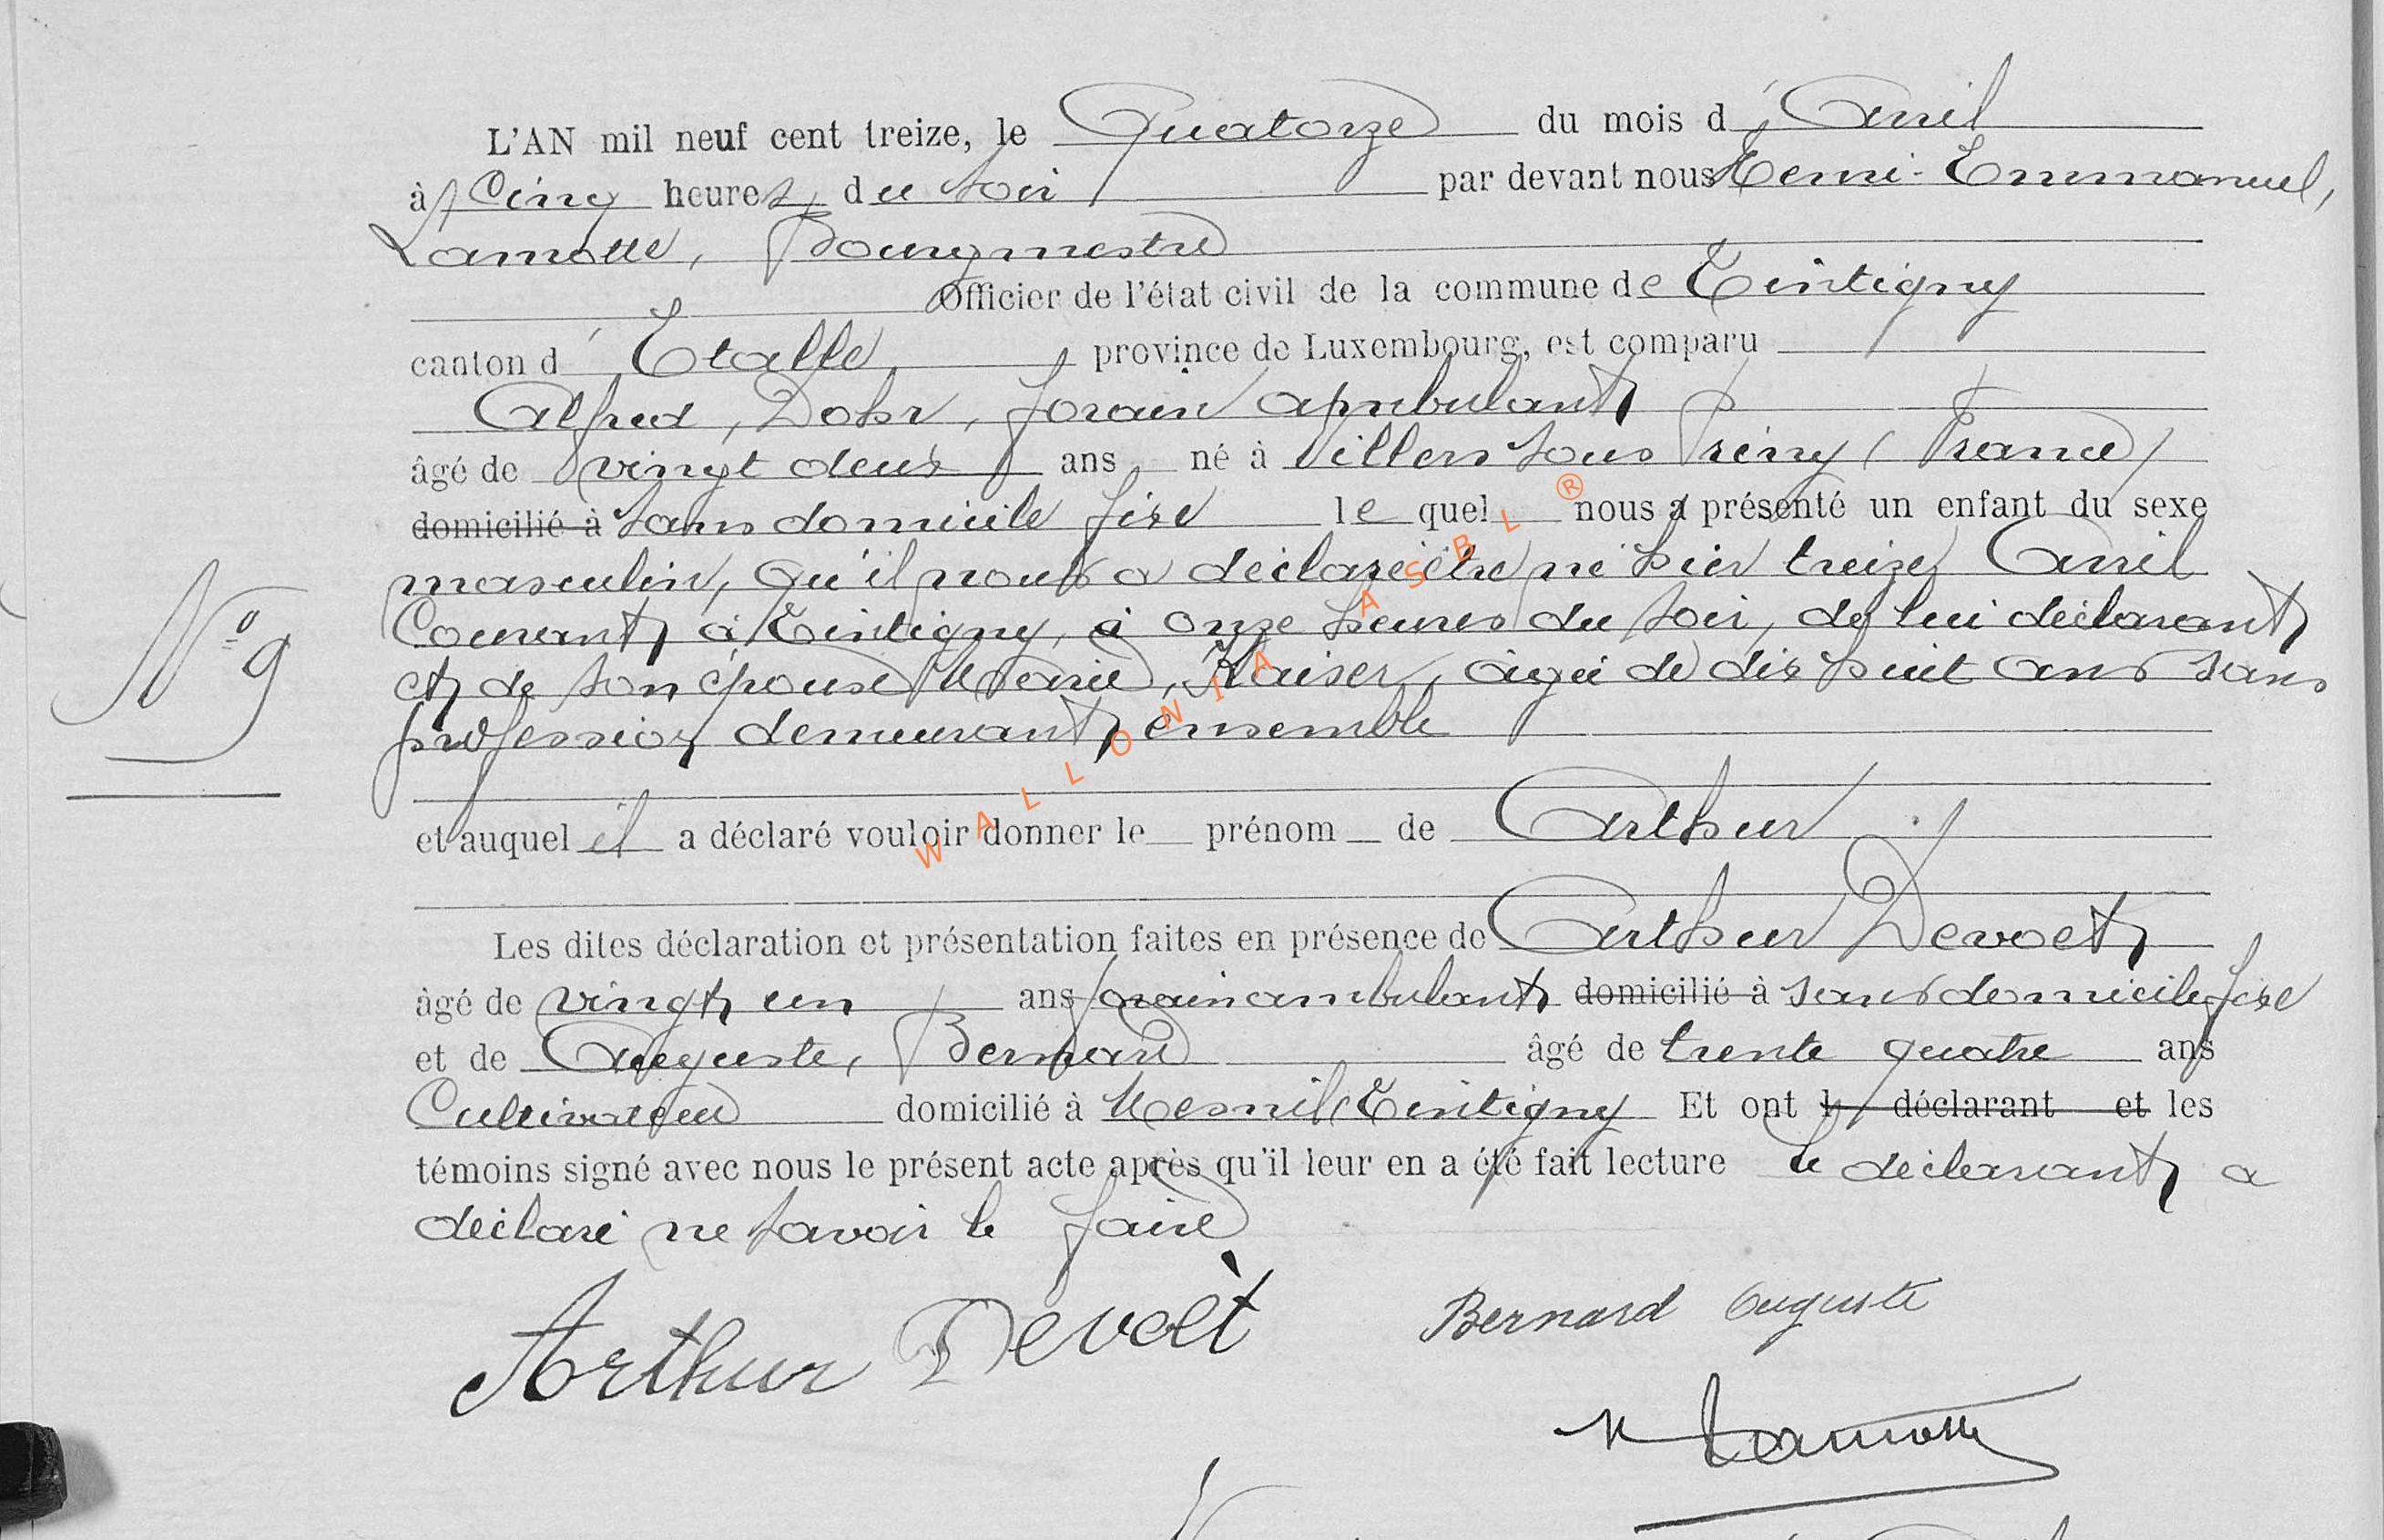 L'AN mil neuf cent treize, le Quatorze du mois d'Avril
à Cinq heures du soir par devant nous Henri-Emmanuel,
Lamotte, Bourgmestre
Officier de l'état civil de la commune de Tintigny
canton d'Etalle province de Luxembourg, est comparu
Alfred, Dohr, forain ambulant
âgé de vingt deux ans né à Villers sous Prény (France)
domicilié à sans domicile fixe lequel nous a présenté un enfant du sexe
masculin, qu'il nous a déclaré être né hier treize Avril
Courant à Tintigny, à onze heures du soir, de lui déclarant
N° 9
et de son épouse Marie, Kaiser, âgée de dix huit ans sans
profession demeurant ensemble
et auquel il a déclaré vouloir donner le prénom de Arthur
Les dites déclaration et présentation faites en présence de Arthur Devoet
âgé de vingt un ans forain ambulant domicilié à sans domicile fixe
et de Auguste, Bernard âgé de trente quatre ans
Cultivateur domicilié à Mesnil Tintigny Et ont l déclarant et les
témoins signé avec nous le présent acte après qu'il leur en a été fait lecture le déclarant a
déclaré ne savoir le faire
Arthur Devoèt
Bernard Auguste
H Lamotte
WALLONIA ASBL ®